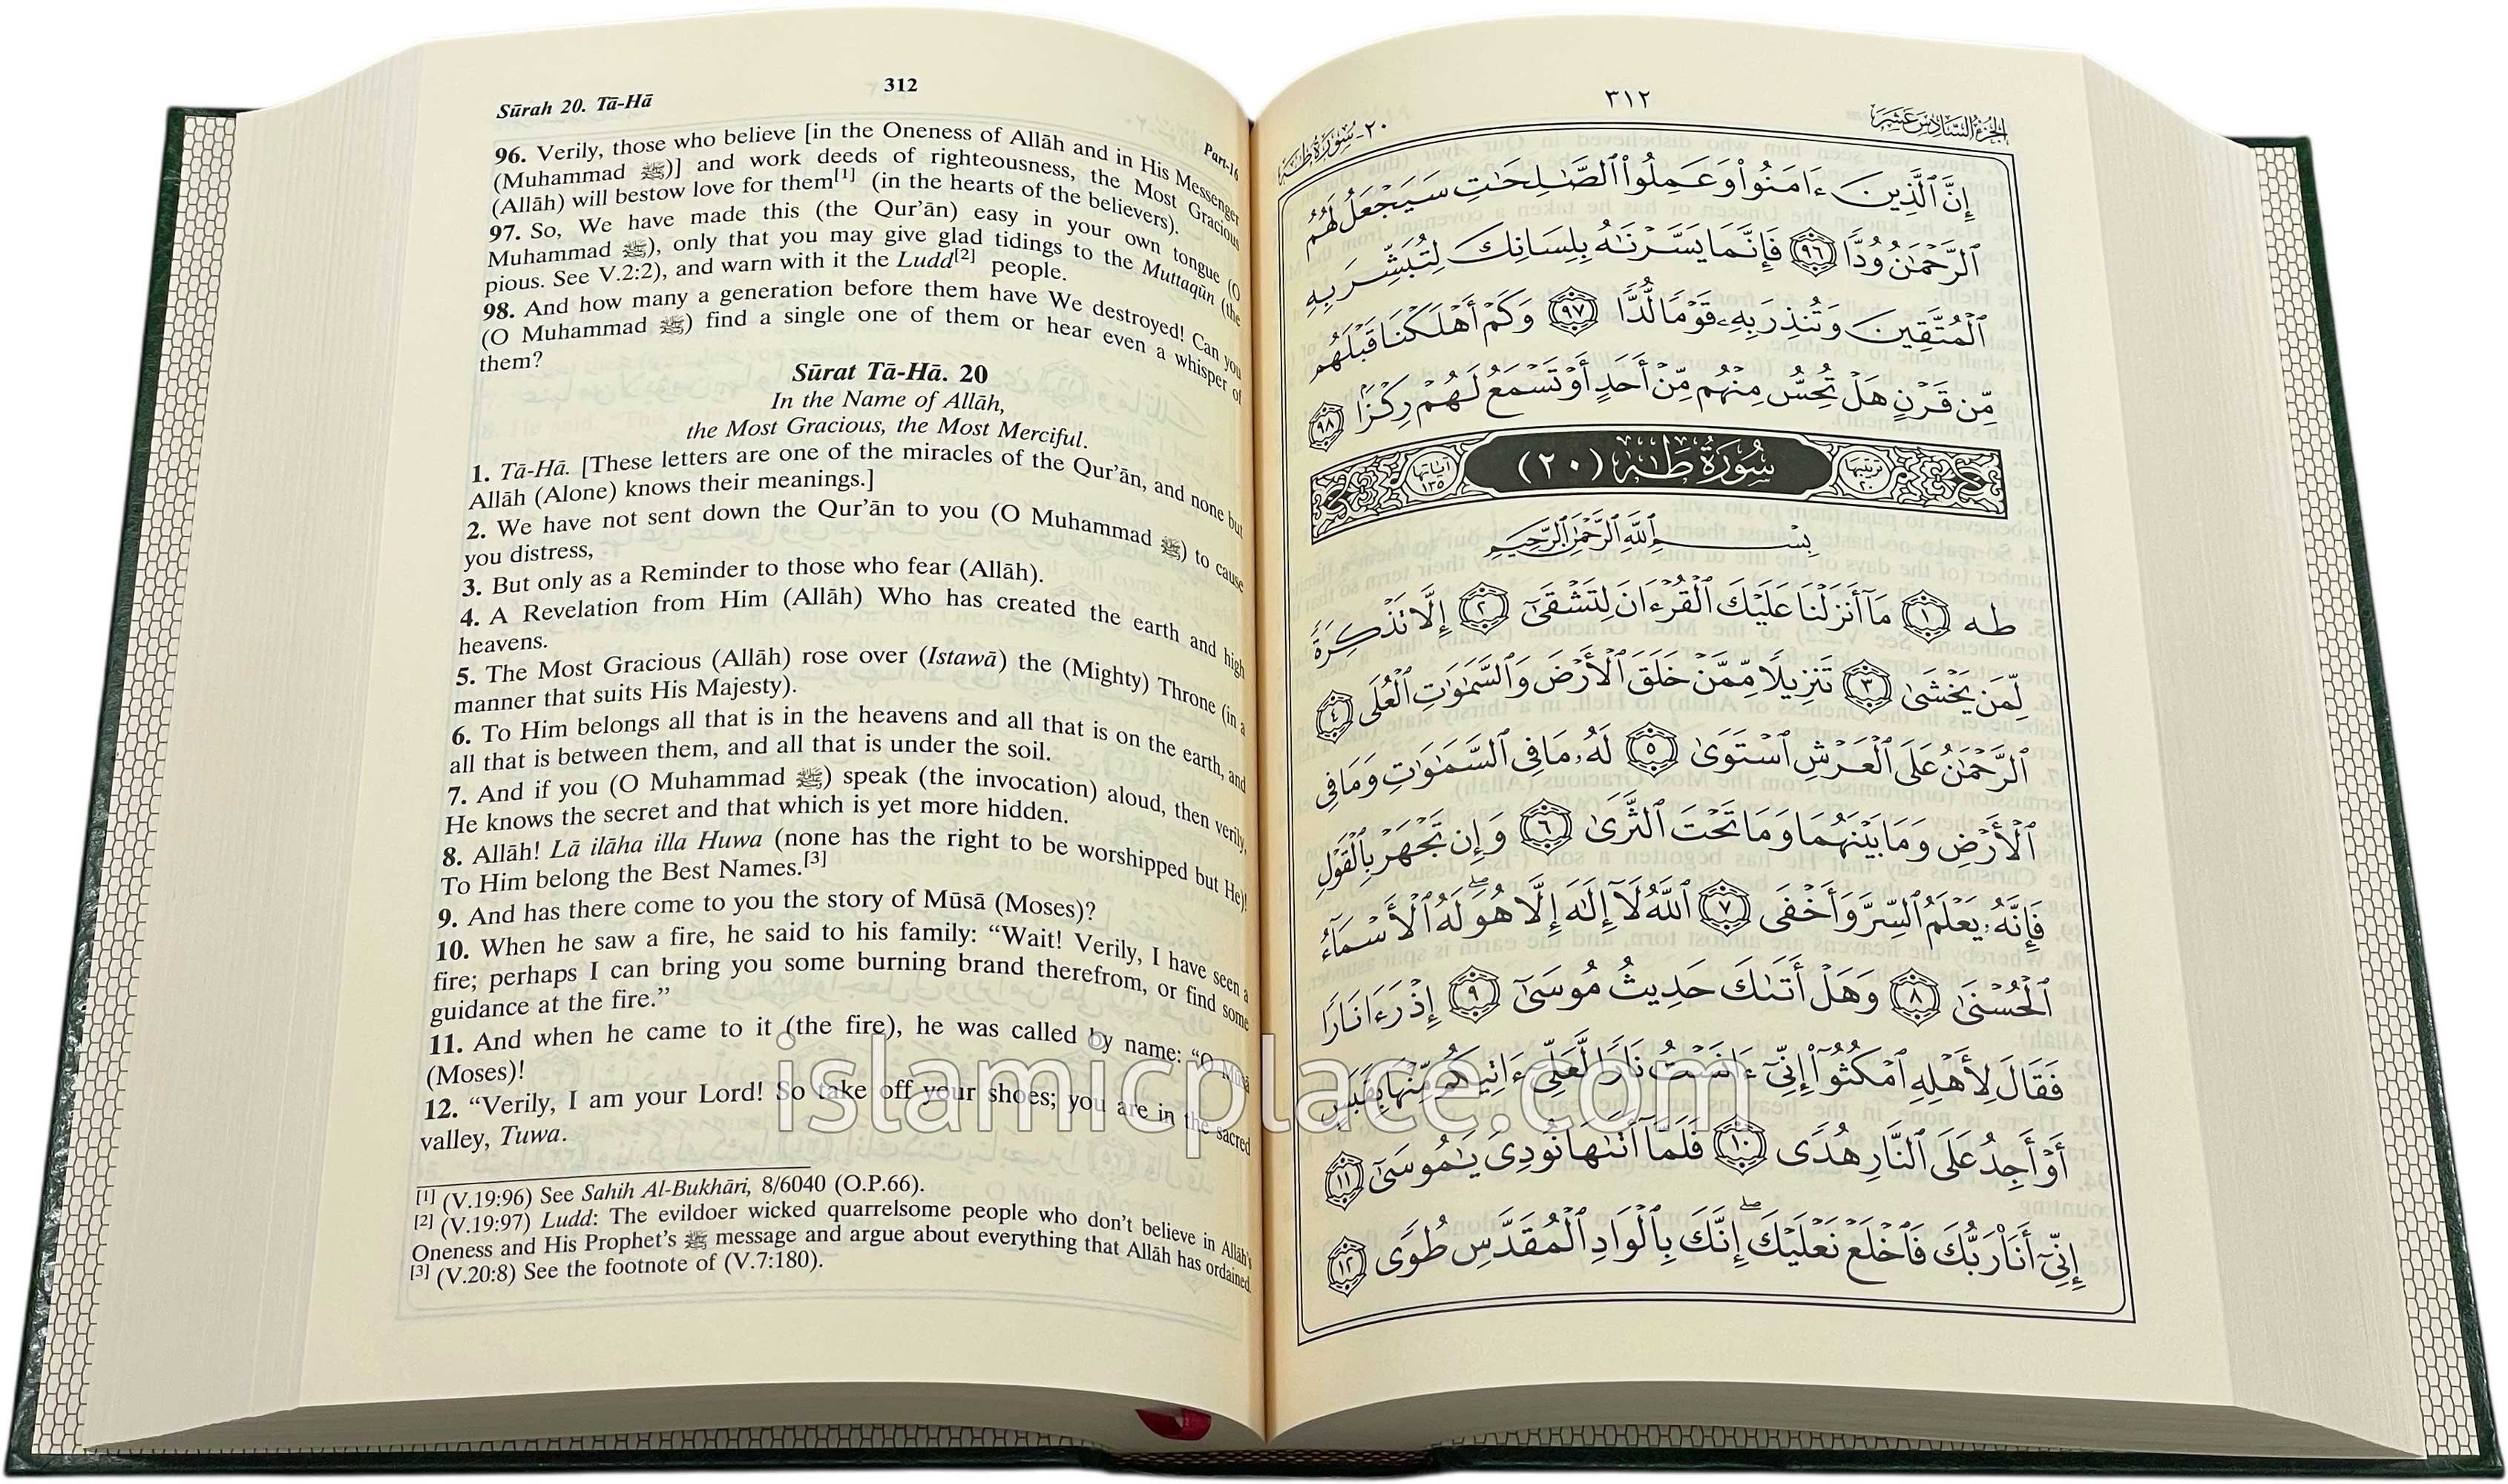 312
Sūrah 20. Tā-Hā
Part-16
96. Verily, those who believe [in the Oneness of Allāh and in His Messenger
(Muhammad ﷺ)] and work deeds of righteousness, the Most Gracious
(Allāh) will bestow love for them[1] (in the hearts of the believers).
97. So, We have made this (the Qur’ān) easy in your own tongue (O
Muhammad ﷺ), only that you may give glad tidings to the Muttaqūn (the
pious. See V.2:2), and warn with it the Ludd[2] people.
98. And how many a generation before them have We destroyed! Can you
(O Muhammad ﷺ) find a single one of them or hear even a whisper of
them?
Sūrat Tā-Hā. 20
In the Name of Allāh,
the Most Gracious, the Most Merciful.
1. Tā-Hā. [These letters are one of the miracles of the Qur’ān, and none but
Allāh (Alone) knows their meanings.]
2. We have not sent down the Qur’ān to you (O Muhammad ﷺ) to cause
you distress,
3. But only as a Reminder to those who fear (Allāh).
4. A Revelation from Him (Allāh) Who has created the earth and high
heavens.
5. The Most Gracious (Allāh) rose over (Istawā) the (Mighty) Throne (in a
manner that suits His Majesty).
6. To Him belongs all that is in the heavens and all that is on the earth, and
all that is between them, and all that is under the soil.
7. And if you (O Muhammad ﷺ) speak (the invocation) aloud, then verily,
He knows the secret and that which is yet more hidden.
8. Allāh! Lā ilāha illa Huwa (none has the right to be worshipped but He)!
To Him belong the Best Names.[3]
9. And has there come to you the story of Mūsā (Moses)?
10. When he saw a fire, he said to his family: “Wait! Verily, I have seen a
fire; perhaps I can bring you some burning brand therefrom, or find some
guidance at the fire.”
11. And when he came to it (the fire), he was called by name: “O Mūsā
(Moses)!
12. “Verily, I am your Lord! So take off your shoes; you are in the sacred
valley, Tuwa.
[1] (V.19:96) See Sahih Al-Bukhāri, 8/6040 (O.P.66).
[2] (V.19:97) Ludd: The evildoer wicked quarrelsome people who don’t believe in Allāh’s
Oneness and His Prophet’s ﷺ message and argue about everything that Allāh has ordained.
[3] (V.20:8) See the footnote of (V.7:180).
٣١٢
الجزء السادس عشر
٢٠-سورة طه
إِنَّ ٱلَّذِينَ ءَامَنُوا۟ وَعَمِلُوا۟ ٱلصَّٰلِحَٰتِ سَيَجْعَلُ لَهُمُ
ٱلرَّحْمَٰنُ وُدًّا ٩٦ فَإِنَّمَا يَسَّرْنَٰهُ بِلِسَانِكَ لِتُبَشِّرَ بِهِ
ٱلْمُتَّقِينَ وَتُنذِرَ بِهِۦ قَوْمًا لُّدًّا ٩٧ وَكَمْ أَهْلَكْنَا قَبْلَهُم
مِّن قَرْنٍ هَلْ تُحِسُّ مِنْهُم مِّنْ أَحَدٍ أَوْ تَسْمَعُ لَهُمْ رِكْزًۢا ٩٨
ترتيبها ٢٠
سُورَةُ طه (٢٠)
آياتها ١٣٥
بِسْمِ ٱللَّهِ ٱلرَّحْمَٰنِ ٱلرَّحِيمِ
طه ١ مَآ أَنزَلْنَا عَلَيْكَ ٱلْقُرْءَانَ لِتَشْقَىٰٓ ٢ إِلَّا تَذْكِرَةً
لِّمَن يَخْشَىٰ ٣ تَنزِيلًا مِّمَّنْ خَلَقَ ٱلْأَرْضَ وَٱلسَّمَٰوَٰتِ ٱلْعُلَى ٤
ٱلرَّحْمَٰنُ عَلَى ٱلْعَرْشِ ٱسْتَوَىٰ ٥ لَهُۥ مَا فِى ٱلسَّمَٰوَٰتِ وَمَا فِى
ٱلْأَرْضِ وَمَا بَيْنَهُمَا وَمَا تَحْتَ ٱلثَّرَىٰ ٦ وَإِن تَجْهَرْ بِٱلْقَوْلِ
فَإِنَّهُۥ يَعْلَمُ ٱلسِّرَّ وَأَخْفَى ٧ ٱللَّهُ لَآ إِلَٰهَ إِلَّا هُوَ ۖ لَهُ ٱلْأَسْمَآءُ
ٱلْحُسْنَىٰ ٨ وَهَلْ أَتَىٰكَ حَدِيثُ مُوسَىٰٓ ٩ إِذْ رَءَا نَارًا
فَقَالَ لِأَهْلِهِ ٱمْكُثُوٓا۟ إِنِّىٓ ءَانَسْتُ نَارًا لَّعَلِّىٓ ءَاتِيكُم مِّنْهَا بِقَبَسٍ
أَوْ أَجِدُ عَلَى ٱلنَّارِ هُدًى ١٠ فَلَمَّآ أَتَىٰهَا نُودِىَ يَٰمُوسَىٰٓ ١١
إِنِّىٓ أَنَا۠ رَبُّكَ فَٱخْلَعْ نَعْلَيْكَ ۖ إِنَّكَ بِٱلْوَادِ ٱلْمُقَدَّسِ طُوًى ١٢
islamicplace.com